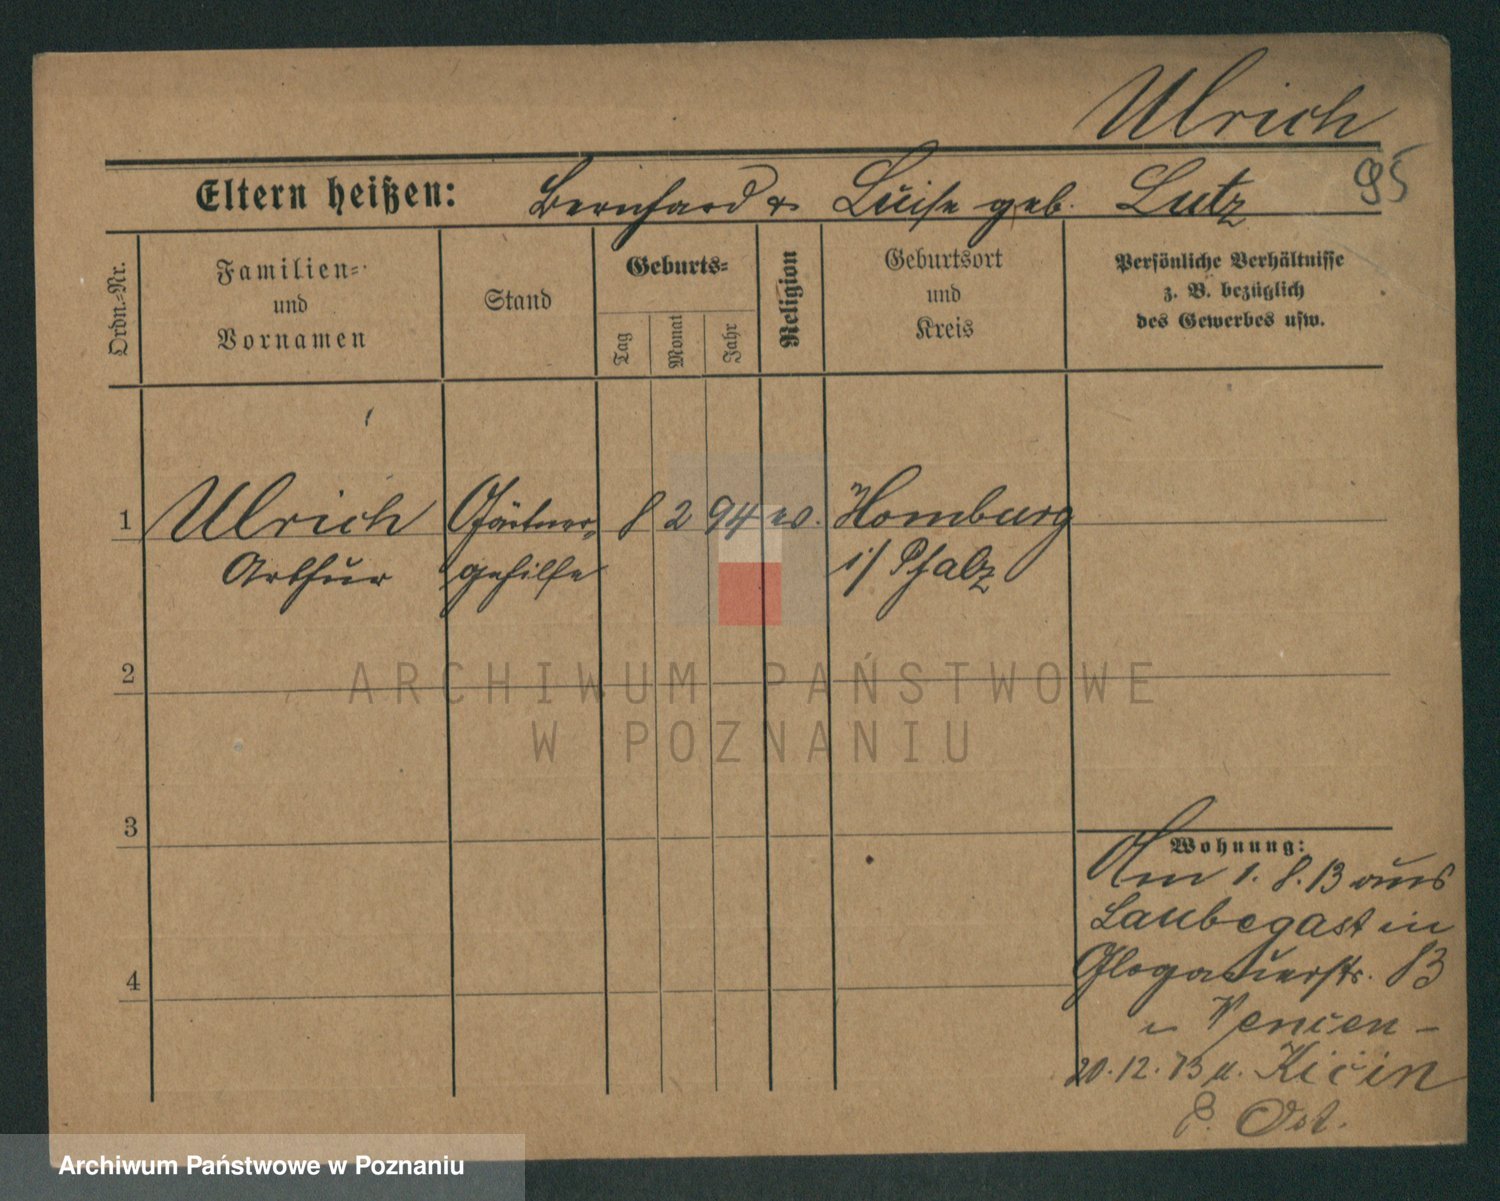 Ulrich
95
Eltern heißen: Bernhard & Luise geb. Lutz
Ordn.-Nr.
Familien-
und
Vornamen
Stand
Geburts-
Tag
Monat
Jahr
Religion
Geburtsort
und
Kreis
Persönliche Verhältnisse
z. B. bezüglich
des Gewerbes usw.
1 Ulrich Gärtner- 8 2 94 ev. Homburg
Arthur gehilfe i/ Pfalz
2
3
4
Wohnung:
Am 1. 8. 13 aus
Laubegast in
Glogauerstr. 83
20.12.13 n. Kicin
P. Ost.
ARCHIWUM PAŃSTWOWE
W POZNANIU
Archiwum Państwowe w Poznaniu